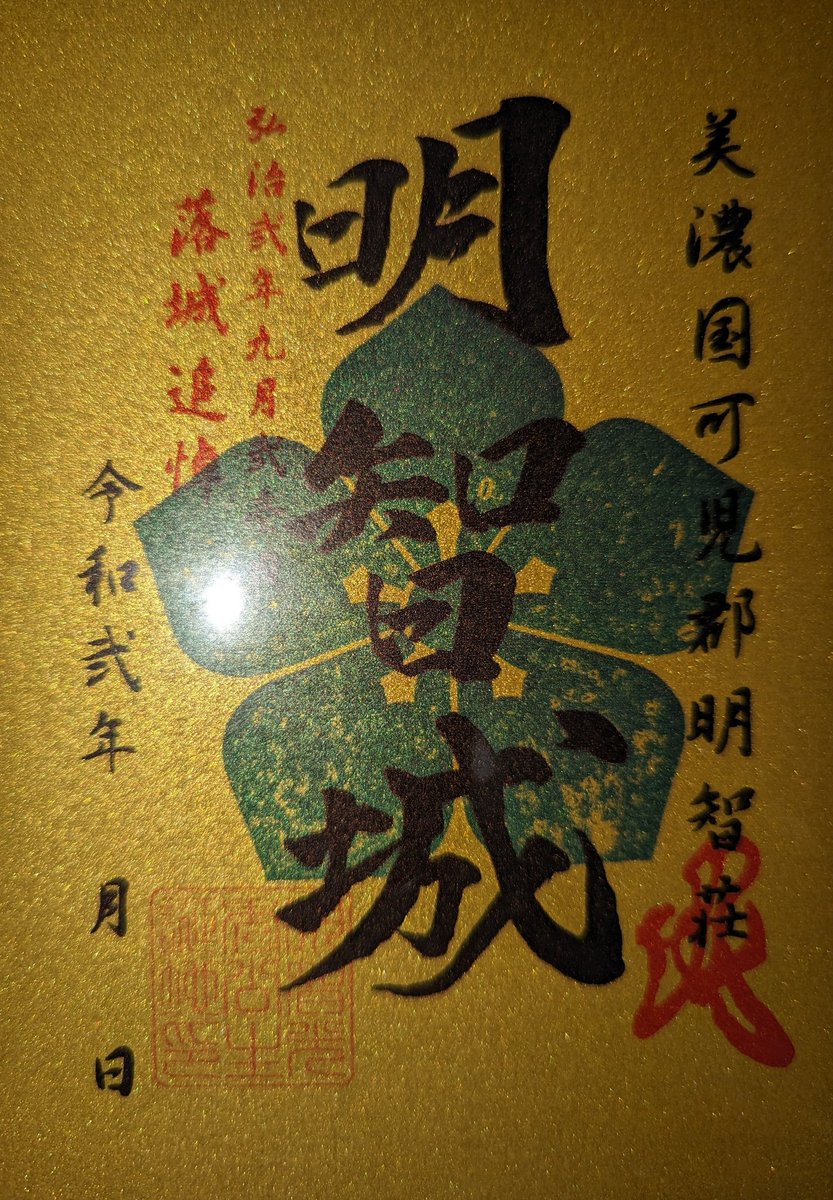 美濃国可児郡明智荘
明智城
弘治弐年九月弐
落城追悼
令和弐年　月　日